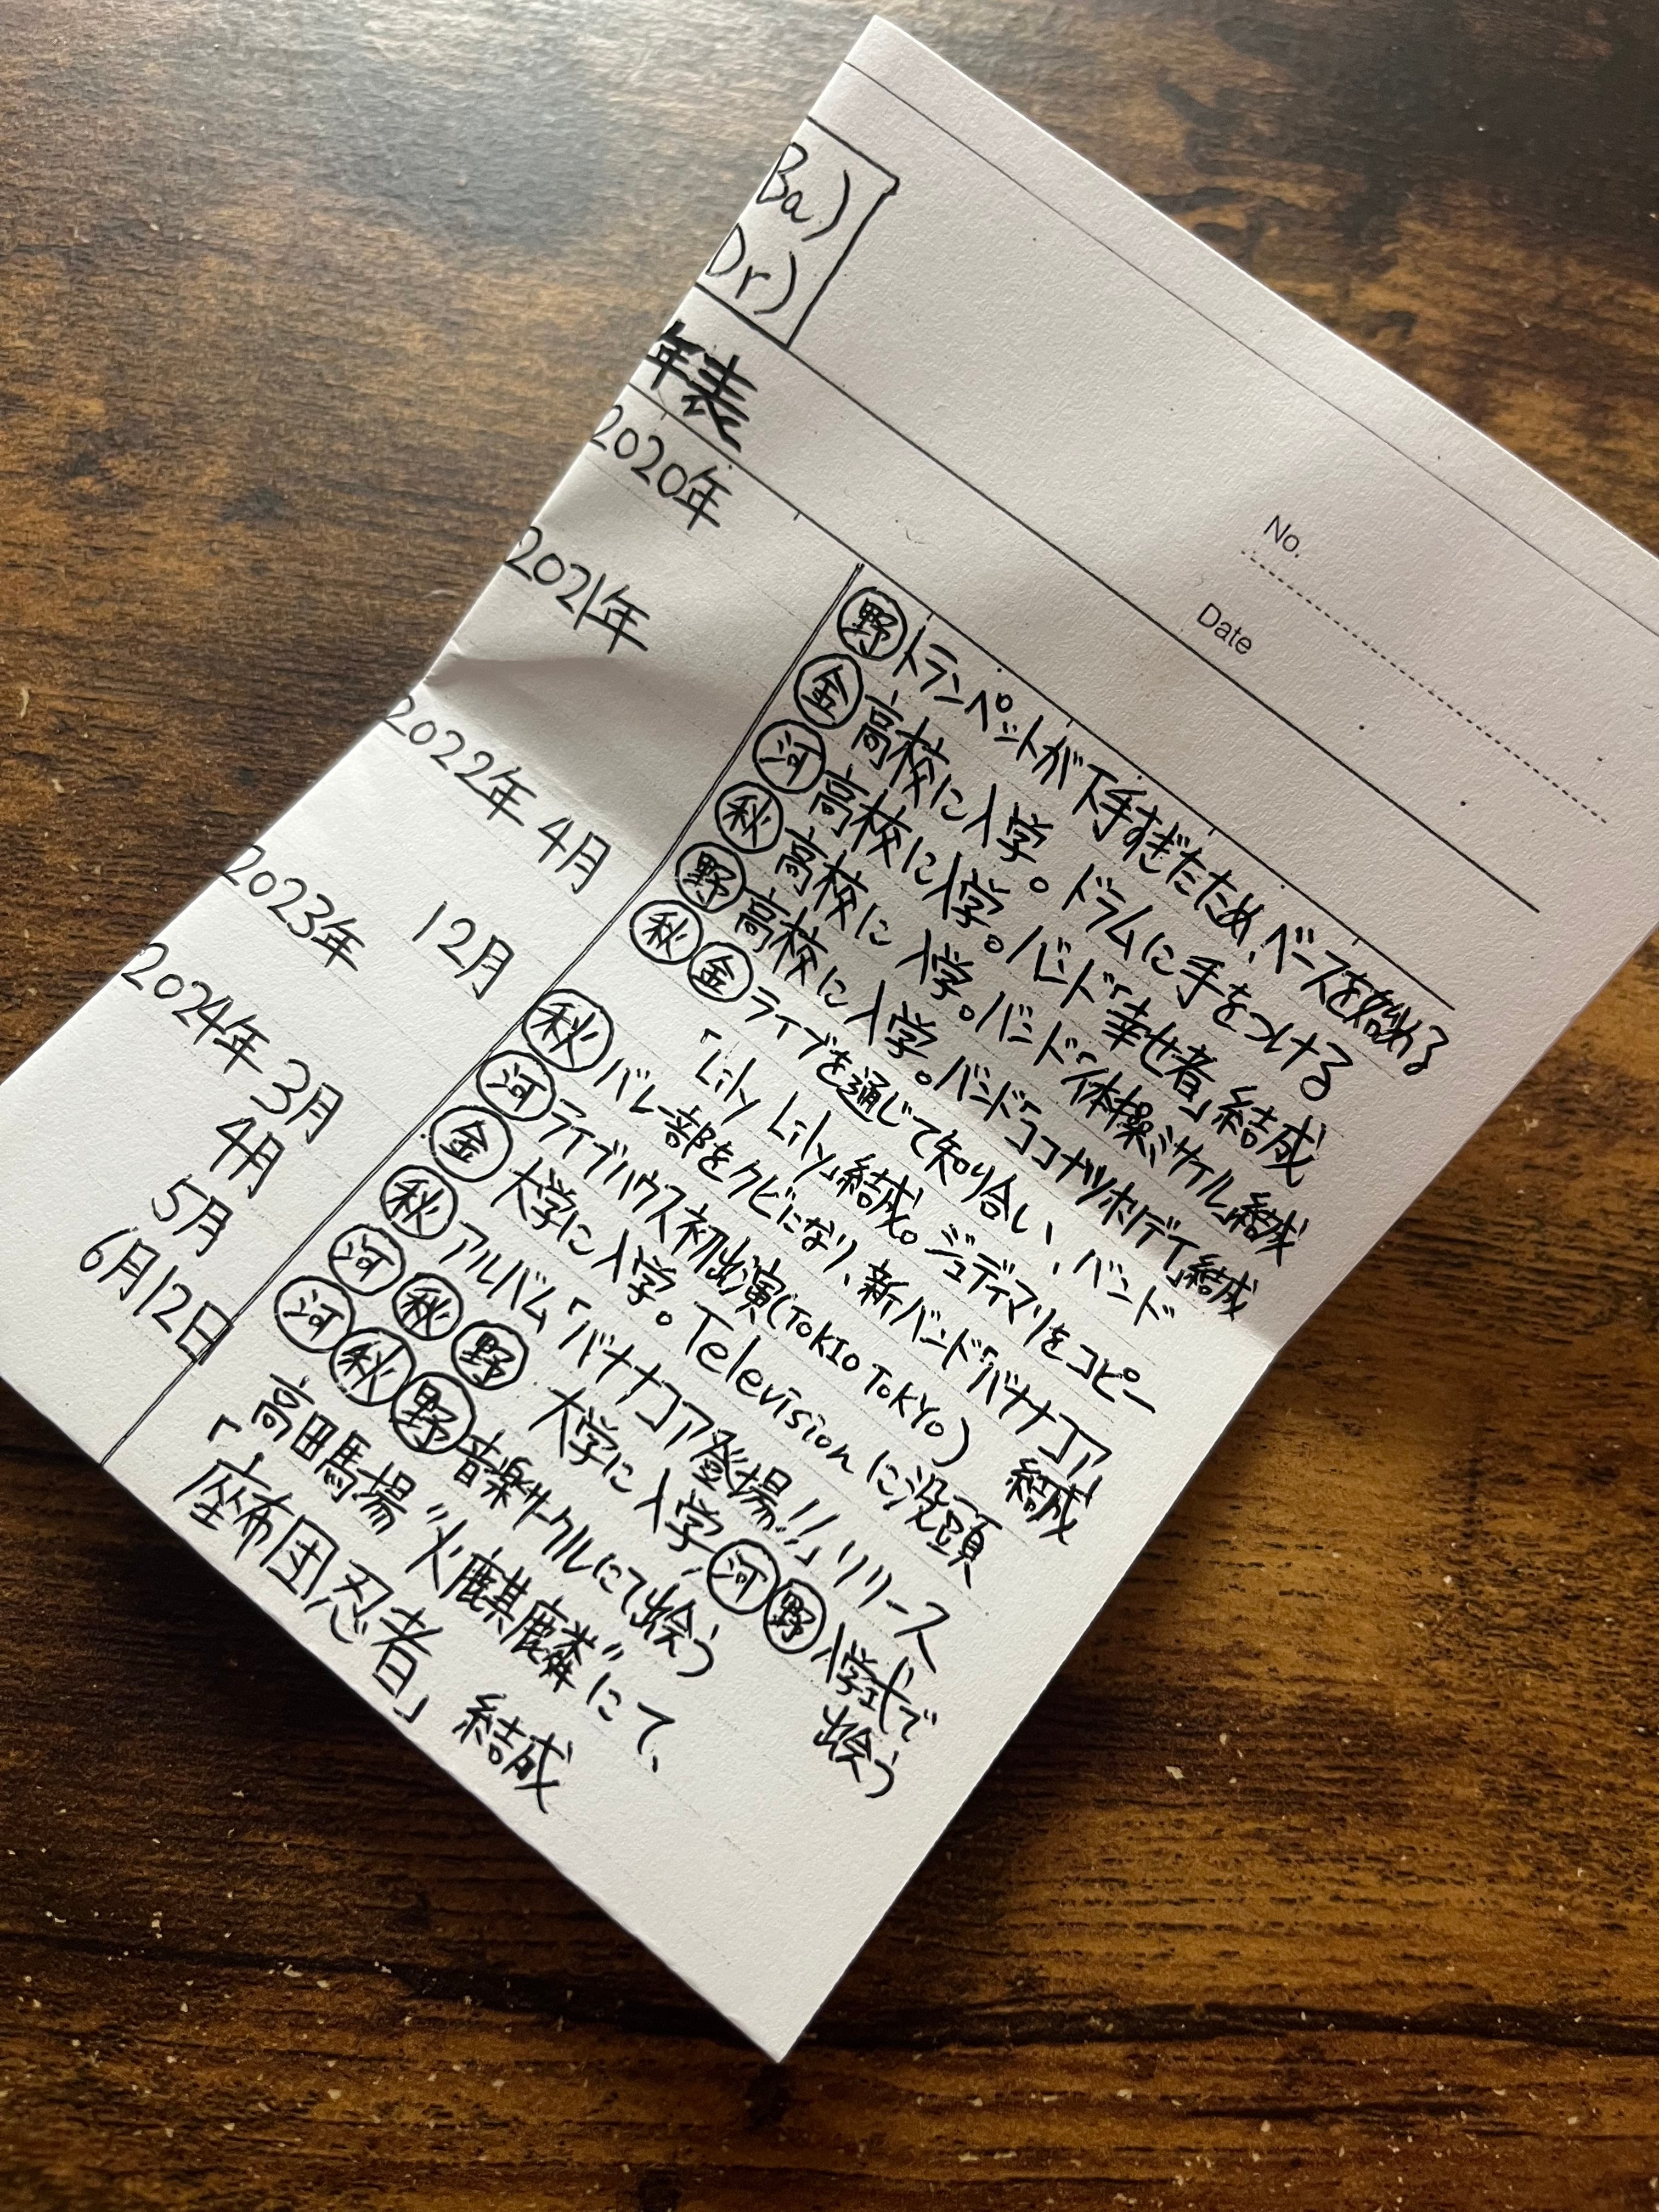 Ba)
Dr)
No.
Date
年表
2020年 野 トランペットが下手すぎたため、ベースを始める
金 高校に入学。ドラムに手をつける
2021年 河 高校に入学。バンド「幸せ者」結成
秋 高校に入学。バンド「体操ミサイル」結成
野 高校に入学。バンド「ココナッツホリデイ」結成
2022年 4月 秋 金 ライブを通じて知り合い、バンド
「Lily Lily」結成。ジュディマリをコピー
12月 秋 バレー部をクビになり、新バンド「バナナコア」結成
2023年 河 ライブハウス初出演(TOKIO TOKYO)
金 大学に入学。Televisionに没頭
2024年 3月 秋 アルバム「バナナコア登場!!」リリース
4月 河 秋 野 大学に入学、河 野 入学式で出会う
5月 河 秋 野 音楽サークルにて出会う
6月12日 高田馬場“火麒麟”にて、
「座布団忍者」結成